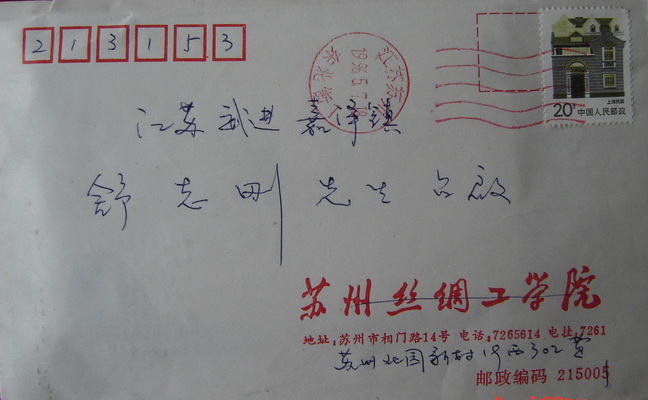 213153
江苏 武进 嘉泽镇
舒志刚 先生 台启
1996.5.7
上海民居
20分 中国人民邮政
苏州丝绸工学院
地址:苏州市相门路14号 电话:7265614 电挂:7261
苏州北园新村19西302 黄
邮政编码 215005